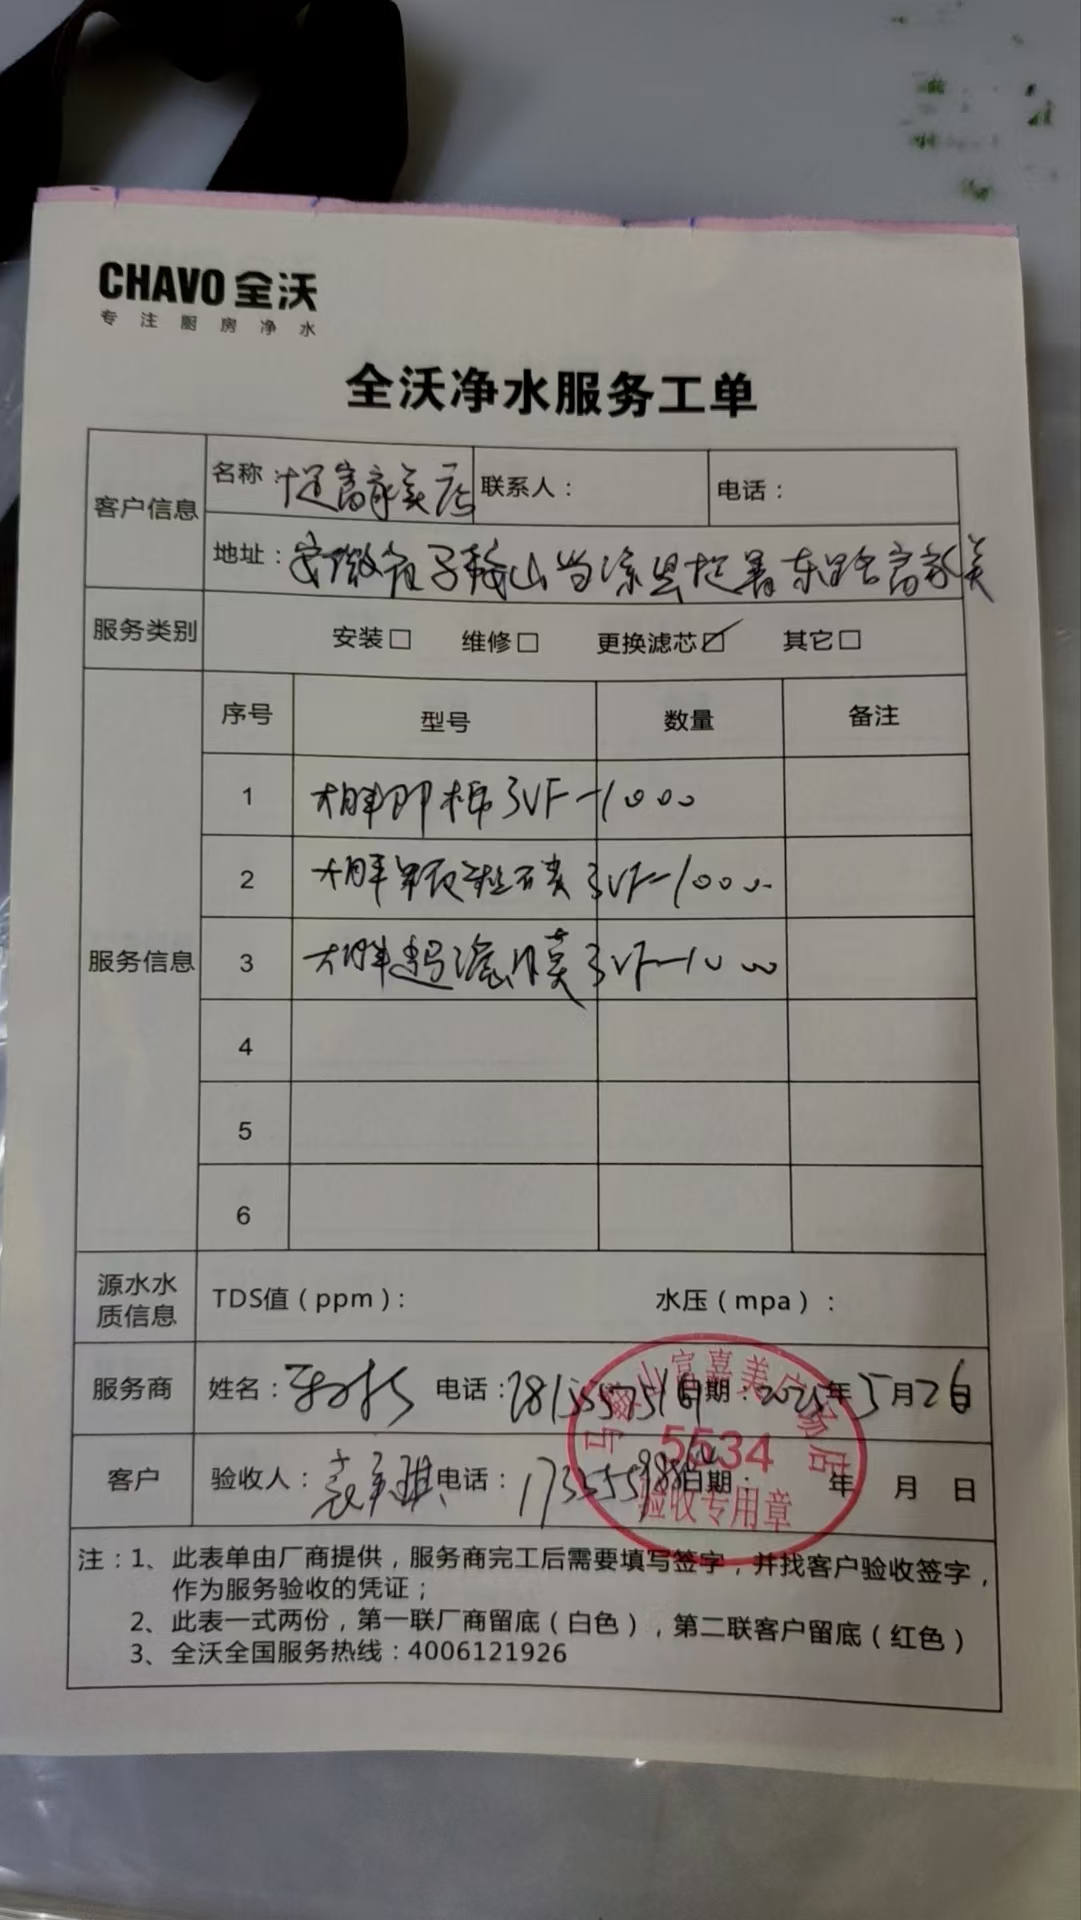 CHAVO 全沃
专注厨房净水
全沃净水服务工单
客户信息
名称
联系人：
电话：
地址：安徽省马鞍山当涂县提署东路富家美
服务类别
安装□ 维修□ 更换滤芯☑ 其它□
服务信息
序号 型号 数量 备注
1 大胖PP棉 3VF-1000
2 大胖 3VF-1000
3 大胖超滤膜 3VF-1000
4
5
6
源水水质信息
TDS值（ppm）： 水压（mpa）：
服务商 姓名： 电话： 日期：2025年5月26日
客户 验收人： 电话： 日期： 年 月 日
马鞍山富嘉美
5534
验收专用章
注：1、此表单由厂商提供，服务商完工后需要填写签字，并找客户验收签字，
作为服务验收的凭证；
2、此表一式两份，第一联厂商留底（白色），第二联客户留底（红色）
3、全沃全国服务热线：4006121926